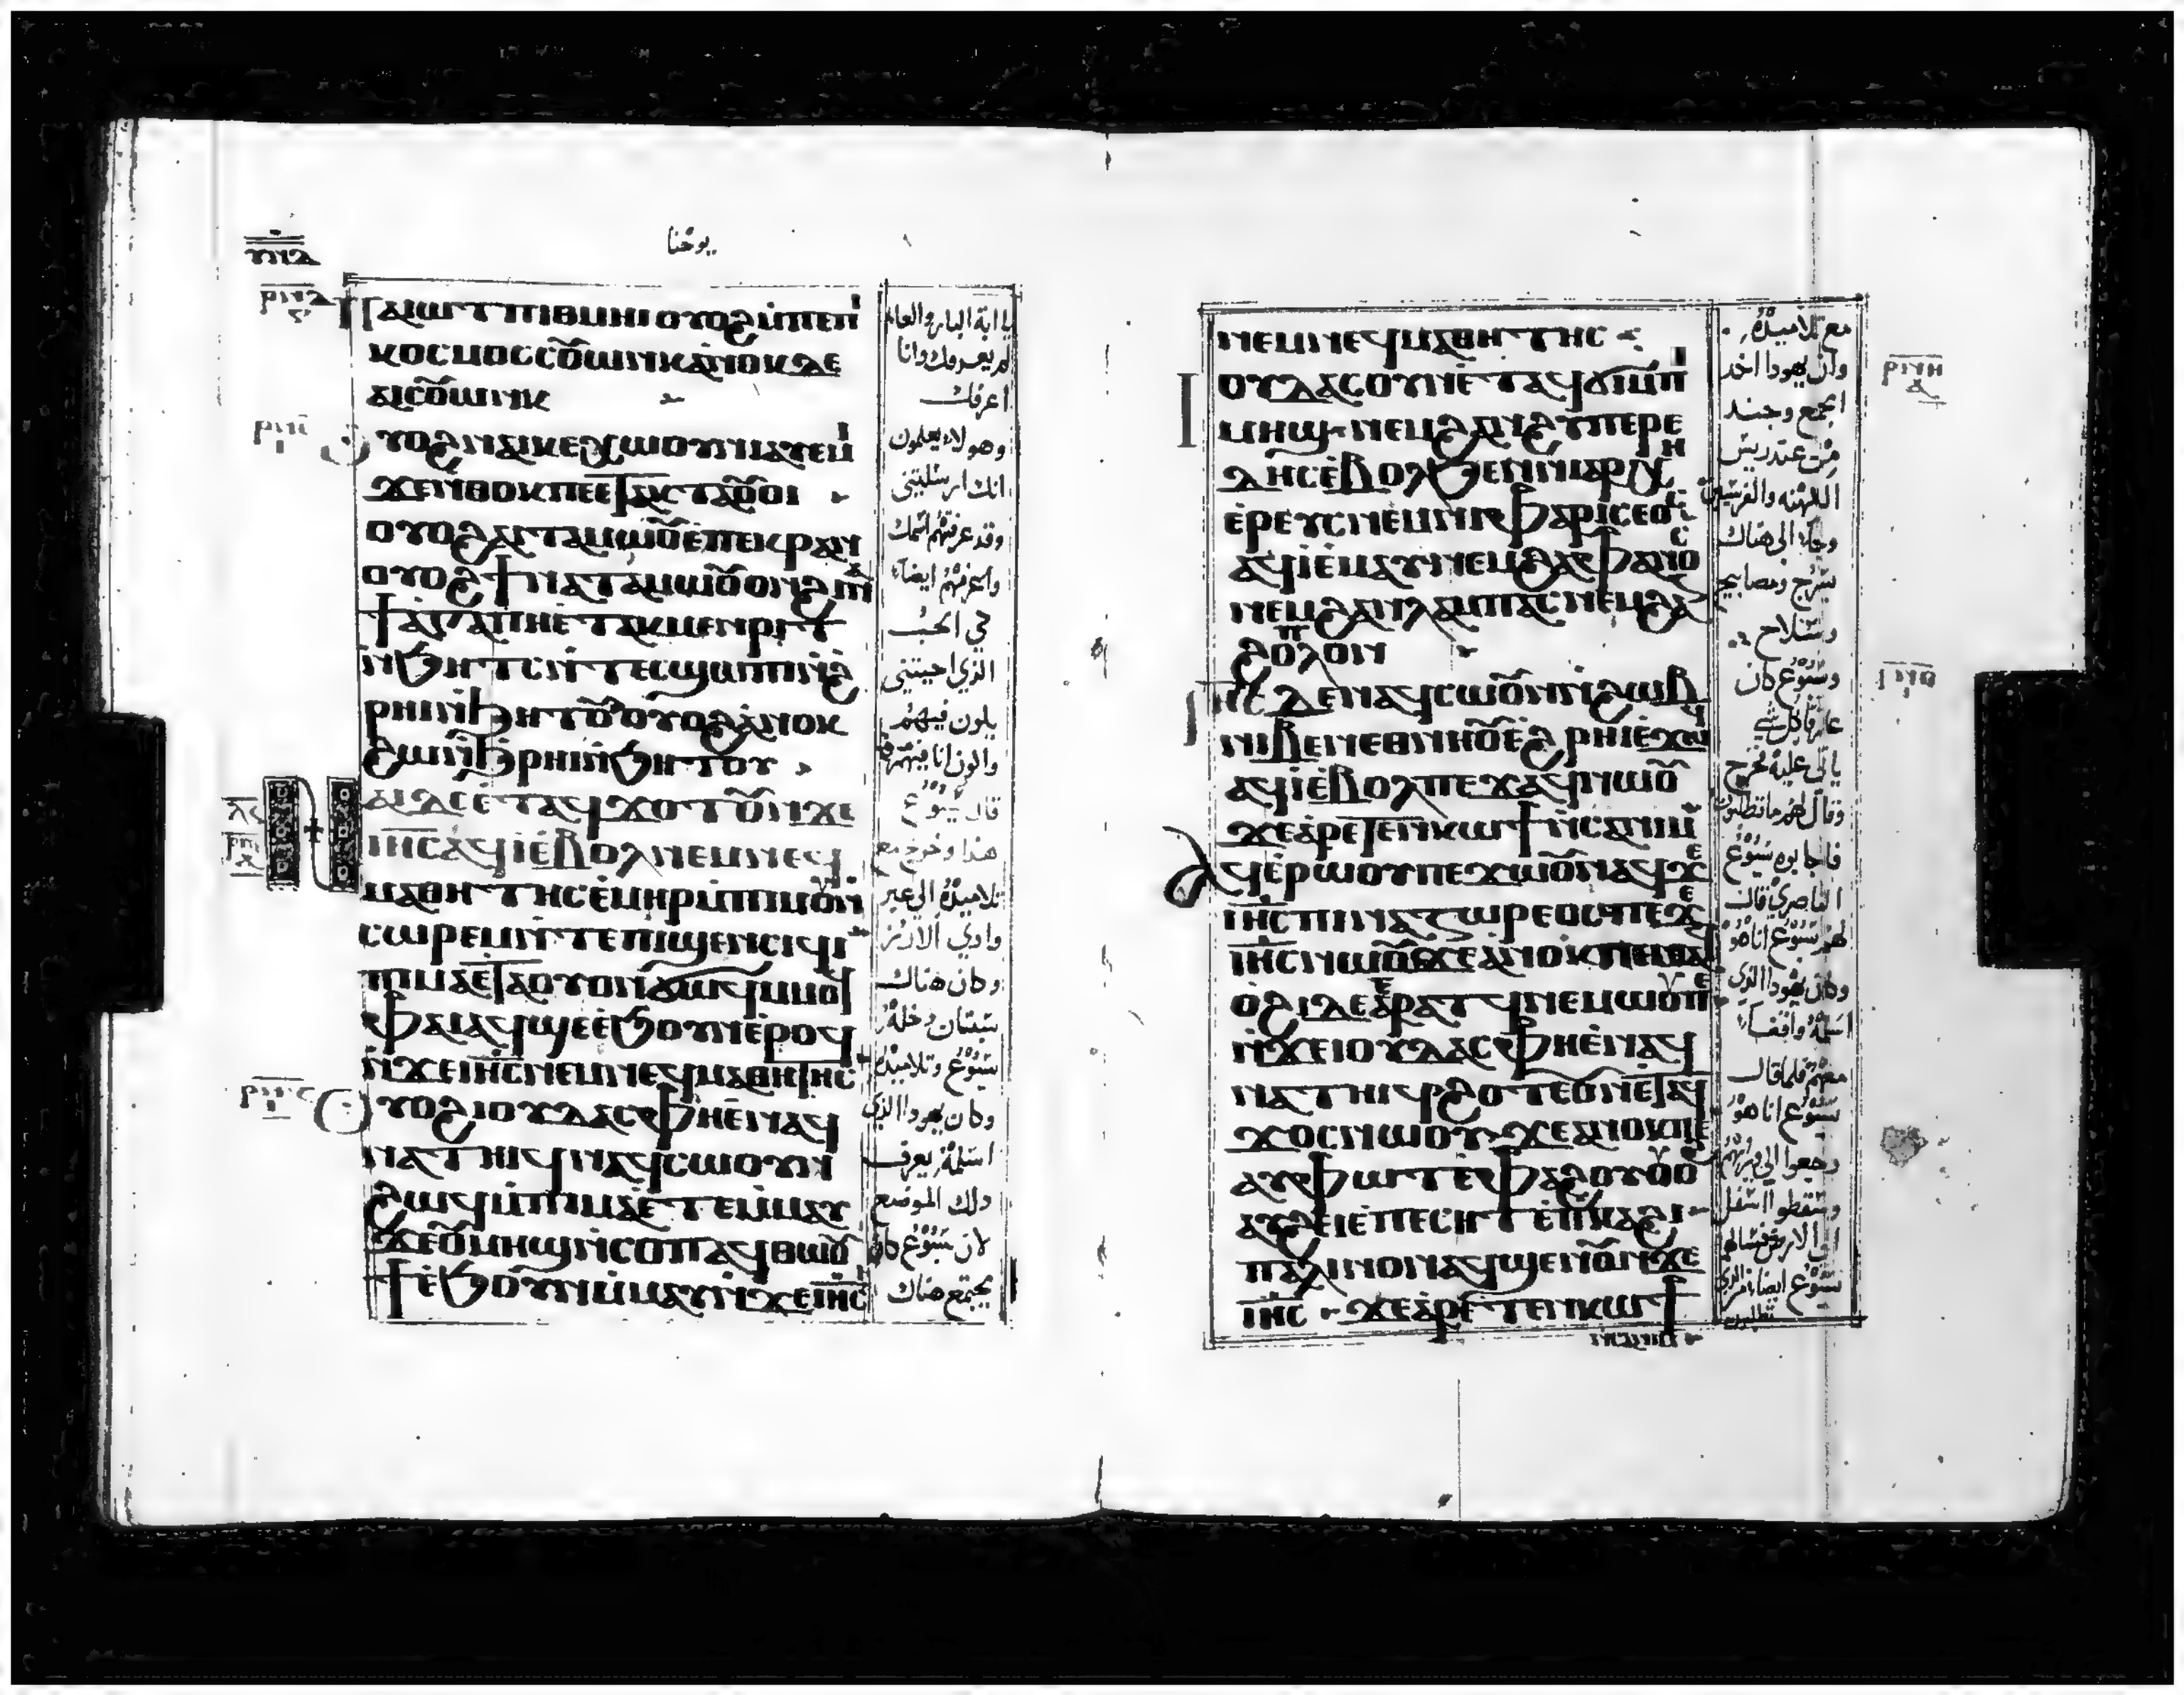 يوحنا
ⲡⲁⲓⲱⲧ ⲡⲓⲑⲙⲏⲓ ⲟⲩⲟϩ ⲙ̇ⲡⲉⲡⲓ
ⲕⲟⲥⲙⲟⲥ ⲥⲟ̅ⲱⲛⲕ ⲁⲛⲟⲕ ⲇⲉ
ⲁⲓⲥⲟ̅ⲱⲛⲕ
ⲟⲩⲟϩ ⲛⲁⲓⲕⲉⲭⲱⲟⲩⲛⲓ ⲁⲩⲉⲙⲓ
ϫⲉ ⲛⲑⲟⲕ ⲡⲉ ⲉⲧⲁⲕⲧⲁⲟ̅ⲟⲓ
ⲟⲩⲟϩ ⲁⲓⲧⲁⲙⲱⲟ̅ ⲉ̇ⲡⲉⲕⲣⲁⲛ
ⲟⲩⲟϩ ϯⲛⲁⲧⲁⲙⲱⲟ̅ ⲟⲛ ϩⲓⲛⲁ
ϯⲁⲅⲁⲡⲏ ⲉ̇ⲧⲁⲕⲙⲉⲛⲣⲓⲧ
ⲛ̇ϧⲏⲧⲥ ⲛ̇ⲧⲉⲥϣⲱⲡⲓ ⲛ̇ϩ
ⲣⲏⲓ ⲛ̇ϧⲏⲧⲟ̅ ⲟⲩⲟϩ ⲁⲛⲟⲕ
ϩⲱ ⲛ̇ϧⲣⲏⲓ ⲛ̇ϧⲏⲧⲟⲩ
ⲛⲁⲓ ⲇⲉ ⲉ̇ⲧⲁϥϫⲟⲧⲟ̅ ⲛ̇ϫⲉ
ⲓⲏ̅ⲥ ⲁϥⲓ̀ ⲉ̇ⲃⲟⲗ ⲛⲉⲙ ⲛⲉϥ
ⲙⲁⲑⲏⲧⲏⲥ ⲉ̇ⲙⲏⲣ ⲙ̇ⲡⲓⲙⲟⲩⲛ
ⲥⲱⲣⲉⲙ ⲛ̇ⲧⲉ ⲡⲓϣⲉⲛⲥⲓϥⲓ
ⲡⲓⲙⲁ ⲉⲧⲁ ⲟⲩⲟⲛ ϭⲱⲙ ⲙ̇ⲙⲟϥ
ⲫⲁⲓ ⲁϥϣⲉ ⲉ̇ϧⲟⲩⲛ ⲉ̇ⲣⲟϥ
ⲛ̇ϫⲉ ⲓⲏ̅ⲥ ⲛⲉⲙ ⲛⲉϥⲙⲁⲑⲏⲧⲏⲥ
ⲟⲩⲟϩ ⲓⲟⲩⲇⲁⲥ ⲫⲏ ⲉ̇ⲛⲁϥ
ⲛⲁⲧⲏⲓϥ ⲛⲁϥⲥⲱⲟⲩⲛ
ϩⲱϥ ⲙ̇ⲡⲓⲙⲁ ⲉ̇ⲧⲉⲙⲙⲁⲩ
ϫⲉ ⲟ̅ⲙⲏϣ ⲛ̇ⲥⲟⲡ ⲁϥⲑⲱⲟ̅
ϯ ⲉ̇ϧⲟⲩⲛ ⲙ̇ⲙⲁⲩ ⲛ̇ϫⲉ ⲓⲏ̅ⲥ
يا ابة البار والعالم
لم يعرفك وانا
اعرفك
وهولاء يعلمون
انك ارسلتني
وقد عرفتهم اسمك
واعرفهم ايضاً
في الحب
الذي احببتني
يكون فيهم
واكون انا فيهم
قال يسوع
هذا وخرج مع
تلاميذه الي عبر
وادي الارز
وكان هناك
بستان دخله
يسوع وتلاميذه
وكان يهودا الذي
اسلمه يعرف
ذلك الموضع
لان يسوع كان
يجتمع هناك
ⲛⲉⲙ ⲛⲉϥⲙⲁⲑⲏⲧⲏⲥ
ⲓⲟⲩⲇⲁⲥ ⲟⲩⲛ ⲉ̇ⲧⲁϥϭⲓ ⲙ̇ⲡⲓ
ⲙⲏϣ ⲛⲉⲙ ϩⲁⲛϩⲩⲡⲉⲣⲉ
ⲇⲏⲥ ⲉ̇ⲃⲟⲗϧⲉⲛ ⲛⲓⲁⲣⲭⲏ
ⲉ̇ⲣⲉⲩⲥ ⲛⲉⲙ ⲛⲓⲫⲁⲣⲓⲥⲉⲟⲥ
ⲁϥⲓ̀ ⲉ̇ⲙⲁⲩ ⲛⲉⲙ ϩⲁⲛⲫⲁⲛⲟⲥ
ⲛⲉⲙ ϩⲁⲛⲗⲁⲙⲡⲁⲥ ⲛⲉⲙ ϩⲁⲛ
ϩⲟⲡⲗⲟⲛ
ⲓⲏ̅ⲥ ⲇⲉ ⲛⲁϥⲥⲱⲟ̅ⲛ ⲛ̇ϩⲱⲃ
ⲛⲓⲃⲉⲛ ⲉⲑⲛⲏⲟ̅ ⲉ̇ϩⲣⲏⲓ ⲉ̇ϫⲱϥ
ⲁϥⲓ̀ ⲉ̇ⲃⲟⲗ ⲡⲉϫⲁϥ ⲛⲱⲟ̅
ϫⲉ ⲁ̇ⲣⲉⲧⲉⲛⲕⲱϯ ⲛ̇ⲥⲁ ⲛⲓⲙ
ⲁⲩⲉⲣⲟⲩⲱ ⲡⲉϫⲱⲟ̅ ⲛⲁϥ ϫⲉ
ⲓⲏ̅ⲥ ⲡⲓⲛⲁⲍⲱⲣⲉⲟⲥ ⲡⲉϫⲉ
ⲓⲏ̅ⲥ ⲛⲱⲟ̅ ϫⲉ ⲁⲛⲟⲕ ⲡⲉ ⲛⲁϥ
ⲟ̇ϩⲓ ⲇⲉ ⲉ̇ⲣⲁⲧϥ ⲛⲉⲙⲱⲟⲩ ⲡⲉ
ⲛ̇ϫⲉ ⲓⲟⲩⲇⲁⲥ ⲫⲏ ⲉ̇ⲛⲁϥ
ⲛⲁⲧⲏⲓϥ ϩⲟⲧⲉ ⲟⲩⲛ ⲉⲧⲁϥ
ϫⲟⲥ ⲛⲱⲟⲩ ϫⲉ ⲁⲛⲟⲕ ⲡⲉ
ⲁⲩⲫⲱⲧ ⲉ̇ⲫⲁϩⲟⲩ ⲟⲩⲟϩ
ⲁⲩϩⲉⲓ ⲉ̇ⲡⲉⲥⲏⲧ ⲉ̇ⲡⲓⲕⲁϩⲓ
ⲡⲁⲗⲓⲛ ⲟⲛ ⲁϥϣⲉⲛⲟ̅ ⲛ̇ϫⲉ
ⲓⲏ̅ⲥ ϫⲉ ⲁ̇ⲣⲉⲧⲉⲛⲕⲱϯ
ⲛ̇ⲥⲁ ⲛⲓⲙ
مع تلاميذه
وان يهودا اخذ
الجمع وجند
من عند ريس
الكهنه والفريسيين
وجاء الي هناك
بسرج ومصابيح
وسلاح
ويسوع كان
عارفا بكل شي
ياتي عليه فخرج
وقال لهم ما تطلبون
فاجابوه يسوع
الناصري قال
لهم يسوع انا هو
وكان يهودا الذي
اسلمه واقفاً
معهم فلما قال
يسوع انا هو
رجعوا الي وراهم
وسقطوا اسفل
الي الارض فسالهم
يسوع ايضا من الذي
تطلبون